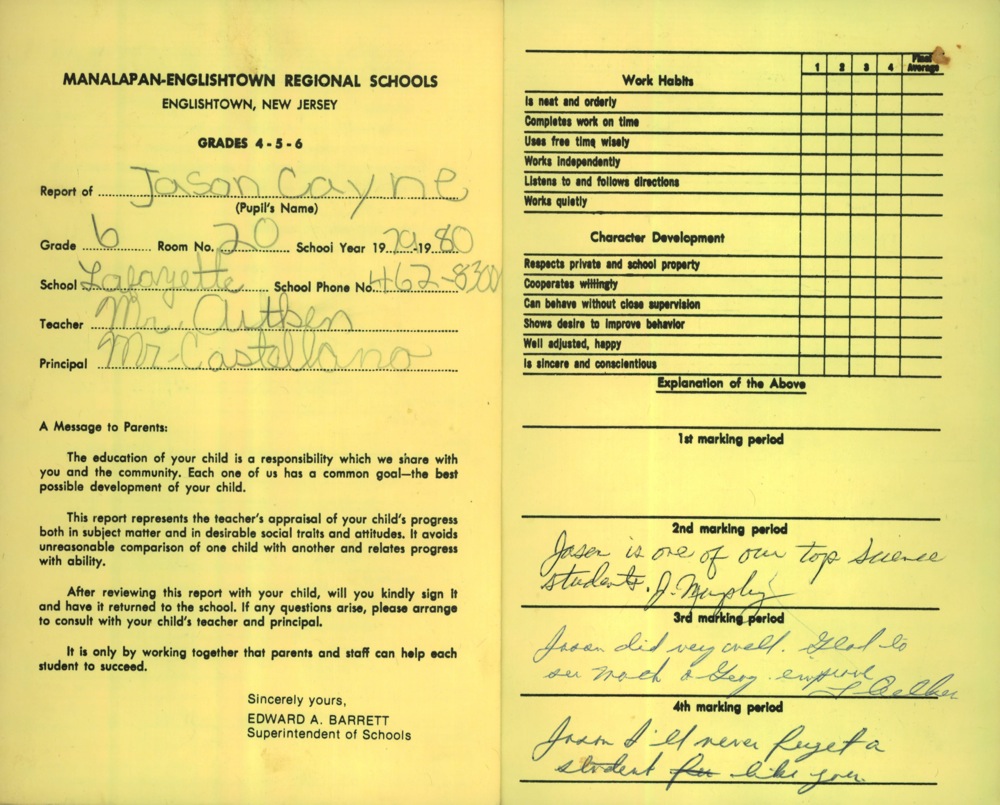 MANALAPAN-ENGLISHTOWN REGIONAL SCHOOLS
ENGLISHTOWN, NEW JERSEY
GRADES 4 - 5 - 6
Report of Jason Cayne
(Pupil's Name)
Grade 6 Room No. 20 School Year 1979-1980
School Lafayette School Phone No. 462-8300
Teacher Mr. Aitken
Principal Mr. Castellano
A Message to Parents:
The education of your child is a responsibility which we share with
you and the community. Each one of us has a common goal—the best
possible development of your child.
This report represents the teacher's appraisal of your child's progress
both in subject matter and in desirable social traits and attitudes. It avoids
unreasonable comparison of one child with another and relates progress
with ability.
After reviewing this report with your child, will you kindly sign it
and have it returned to the school. If any questions arise, please arrange
to consult with your child's teacher and principal.
It is only by working together that parents and staff can help each
student to succeed.
Sincerely yours,
EDWARD A. BARRETT
Superintendent of Schools
1 2 3 4 Final Average
Work Habits
Is neat and orderly
Completes work on time
Uses free time wisely
Works independently
Listens to and follows directions
Works quietly
Character Development
Respects private and school property
Cooperates willingly
Can behave without close supervision
Shows desire to improve behavior
Well adjusted, happy
Is sincere and conscientious
Explanation of the Above
1st marking period
2nd marking period
Jason is one of our top science
students. J. Murphy
3rd marking period
Jason did very well. Glad to
see math & Geog. improve
4th marking period
Jason I'll never forget a
student like you.